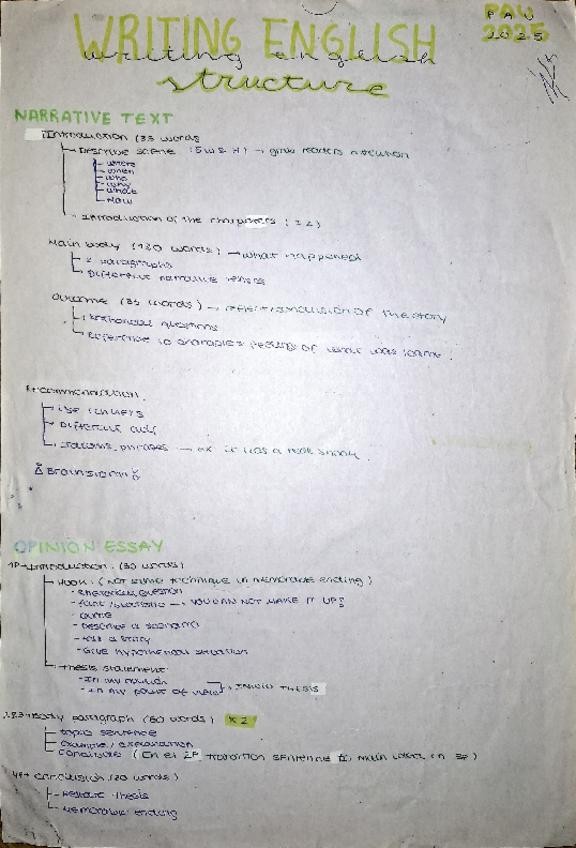 WRITING ENGLISH
writing english
structure
PAU
2025
NARRATIVE TEXT
Introduction (35 words
Describe scene (5W & H) → give readers attention
where
when
who
why
what
How
Introduction of the characters (±2)
Main body (130 words) → what happened
2 paragraphs
Different narrative tenses
Outcome (35 words) → conclusion of the story
Rhetorical questions
Reference to characters feelings of what was learnt.
Recommendation.
Use linkers
Different adj
Idioms, phrases → ex it was a real shock.
Brainstorm
OPINION ESSAY
1P→ Introduction. (30 words)
Hook: (NOT same technique in memorable ending)
- Rhetorical question
- fact/statistic → YOU CAN NOT MAKE IT UP!
- quote
- Describe a scenario
- tell a story
- Give hypothetical situation
thesis statement
- In my opinion
- In my point of view
INICIO THESIS
2&3→ Body paragraph (60 words) x2
topic sentence
example / explanation
conclude (En el 2P transition sentence to main idea in 3P)
4P→ conclusion (20 words)
Restate thesis
Memorable ending